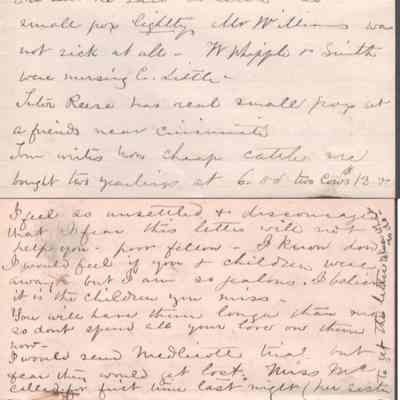 small pox lightly, Mr Williams was
not sick at all - W Whipple & Smith
were nursing C. Little -
Reese has real small pox at
a friends near Cincinnati
Tom writes how cheap cattle are
bought two yearlings at 6.00 two cows
I feel so unsettled & discouraged
that I fear this letter will not
help you - poor fellow - I know how
I would feel if you & children were
away but I am so jealous. I believe
it is the children you miss -
You will have them longer than me
so dont spend all your love on them
now -
I would send Medlicott trial but
fear they would get lost. Miss Mc
called for first time last night (her sister
this letter